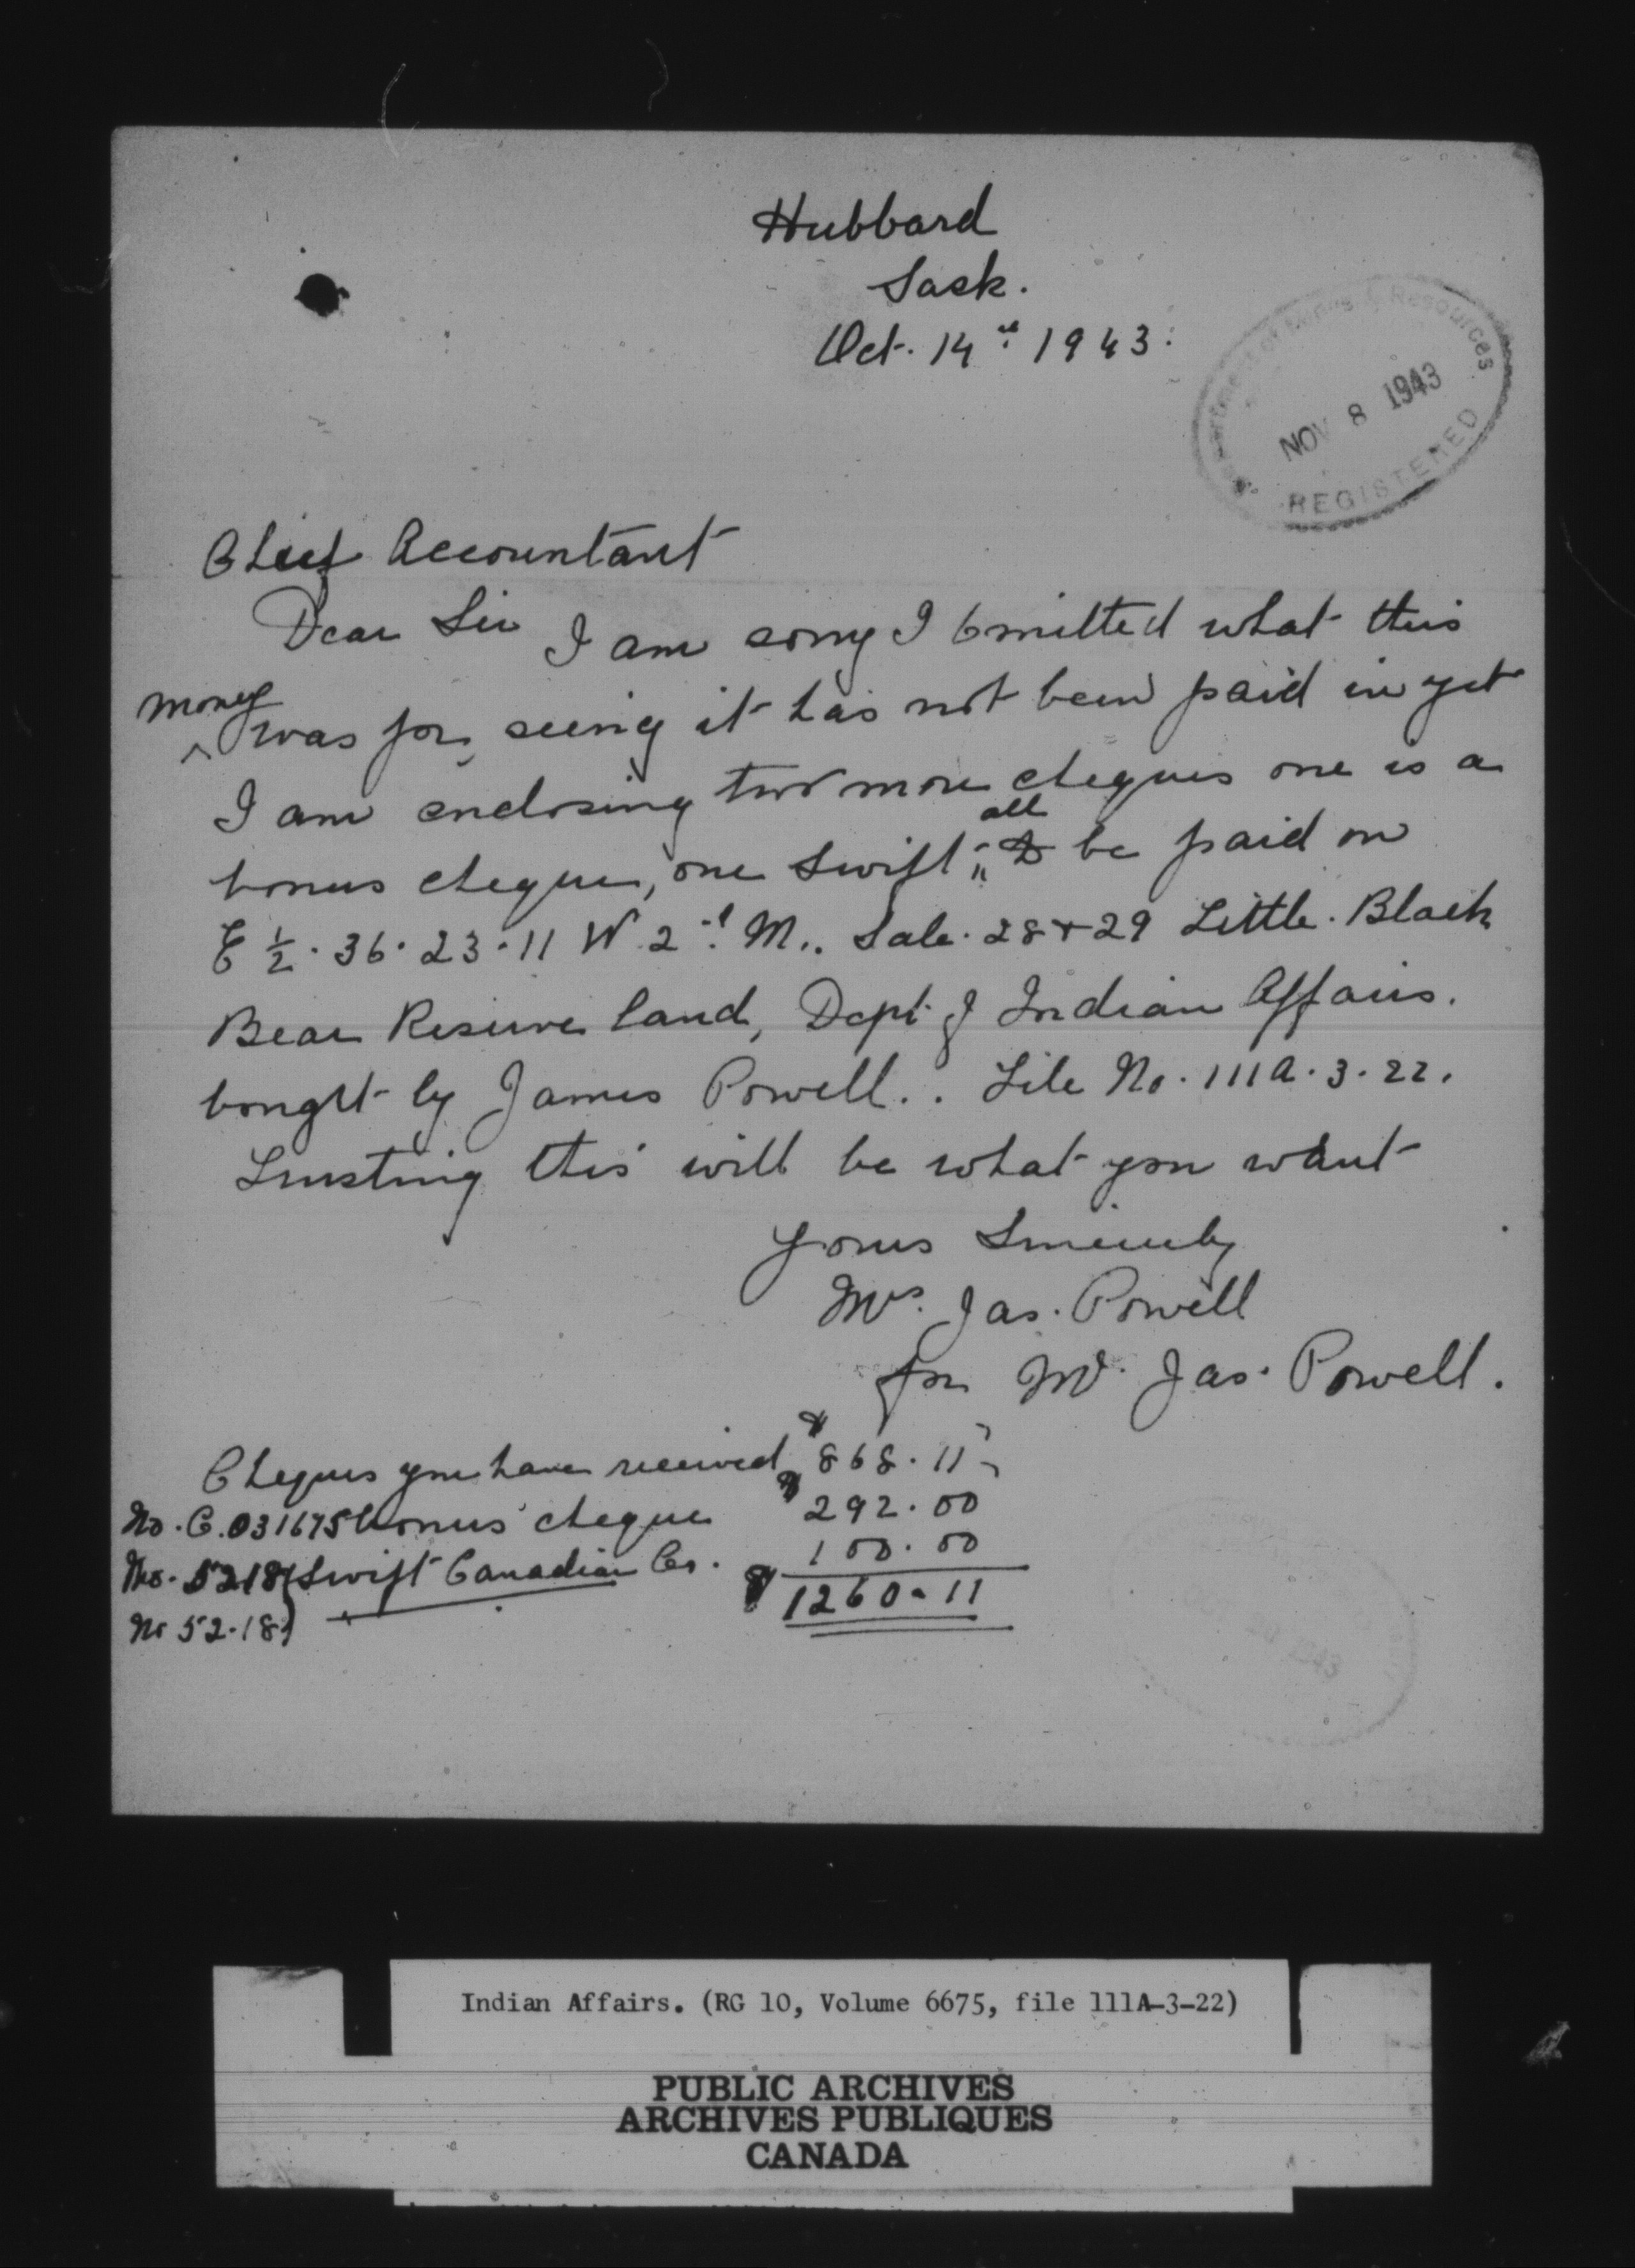 Hubbard
Sask.
Oct. 14th 1943.
Department of Mines & Resources
NOV 8 1943
REGISTERED
Chief Accountant
Dear Sir I am sorry I omitted what this
money
was for, seeing it has not been paid in yet
I am enclosing two more cheques one is a
all
bonus cheque, one Swift " to be paid on
E ½ . 36 . 23 . 11 W 2nd M.. Sale . 28 + 29 Little . Black
Bear Reserve land, Dept. of Indian Affairs.
bought by James Powell. . File No. 111A . 3 . 22.
Trusting this will be what you want
Yours Sincerely
Mrs. Jas. Powell
for Mr. Jas. Powell.
Cheques you have received $ 868 . 11
No. C. 031675 bonus cheque $ 292 . 00
No. 52181 Swift Canadian Co. 100 . 00
No 52.181 $ 1260 - 11
1943
Indian Affairs. (RG 10, Volume 6675, file 111A-3-22)
PUBLIC ARCHIVES
ARCHIVES PUBLIQUES
CANADA